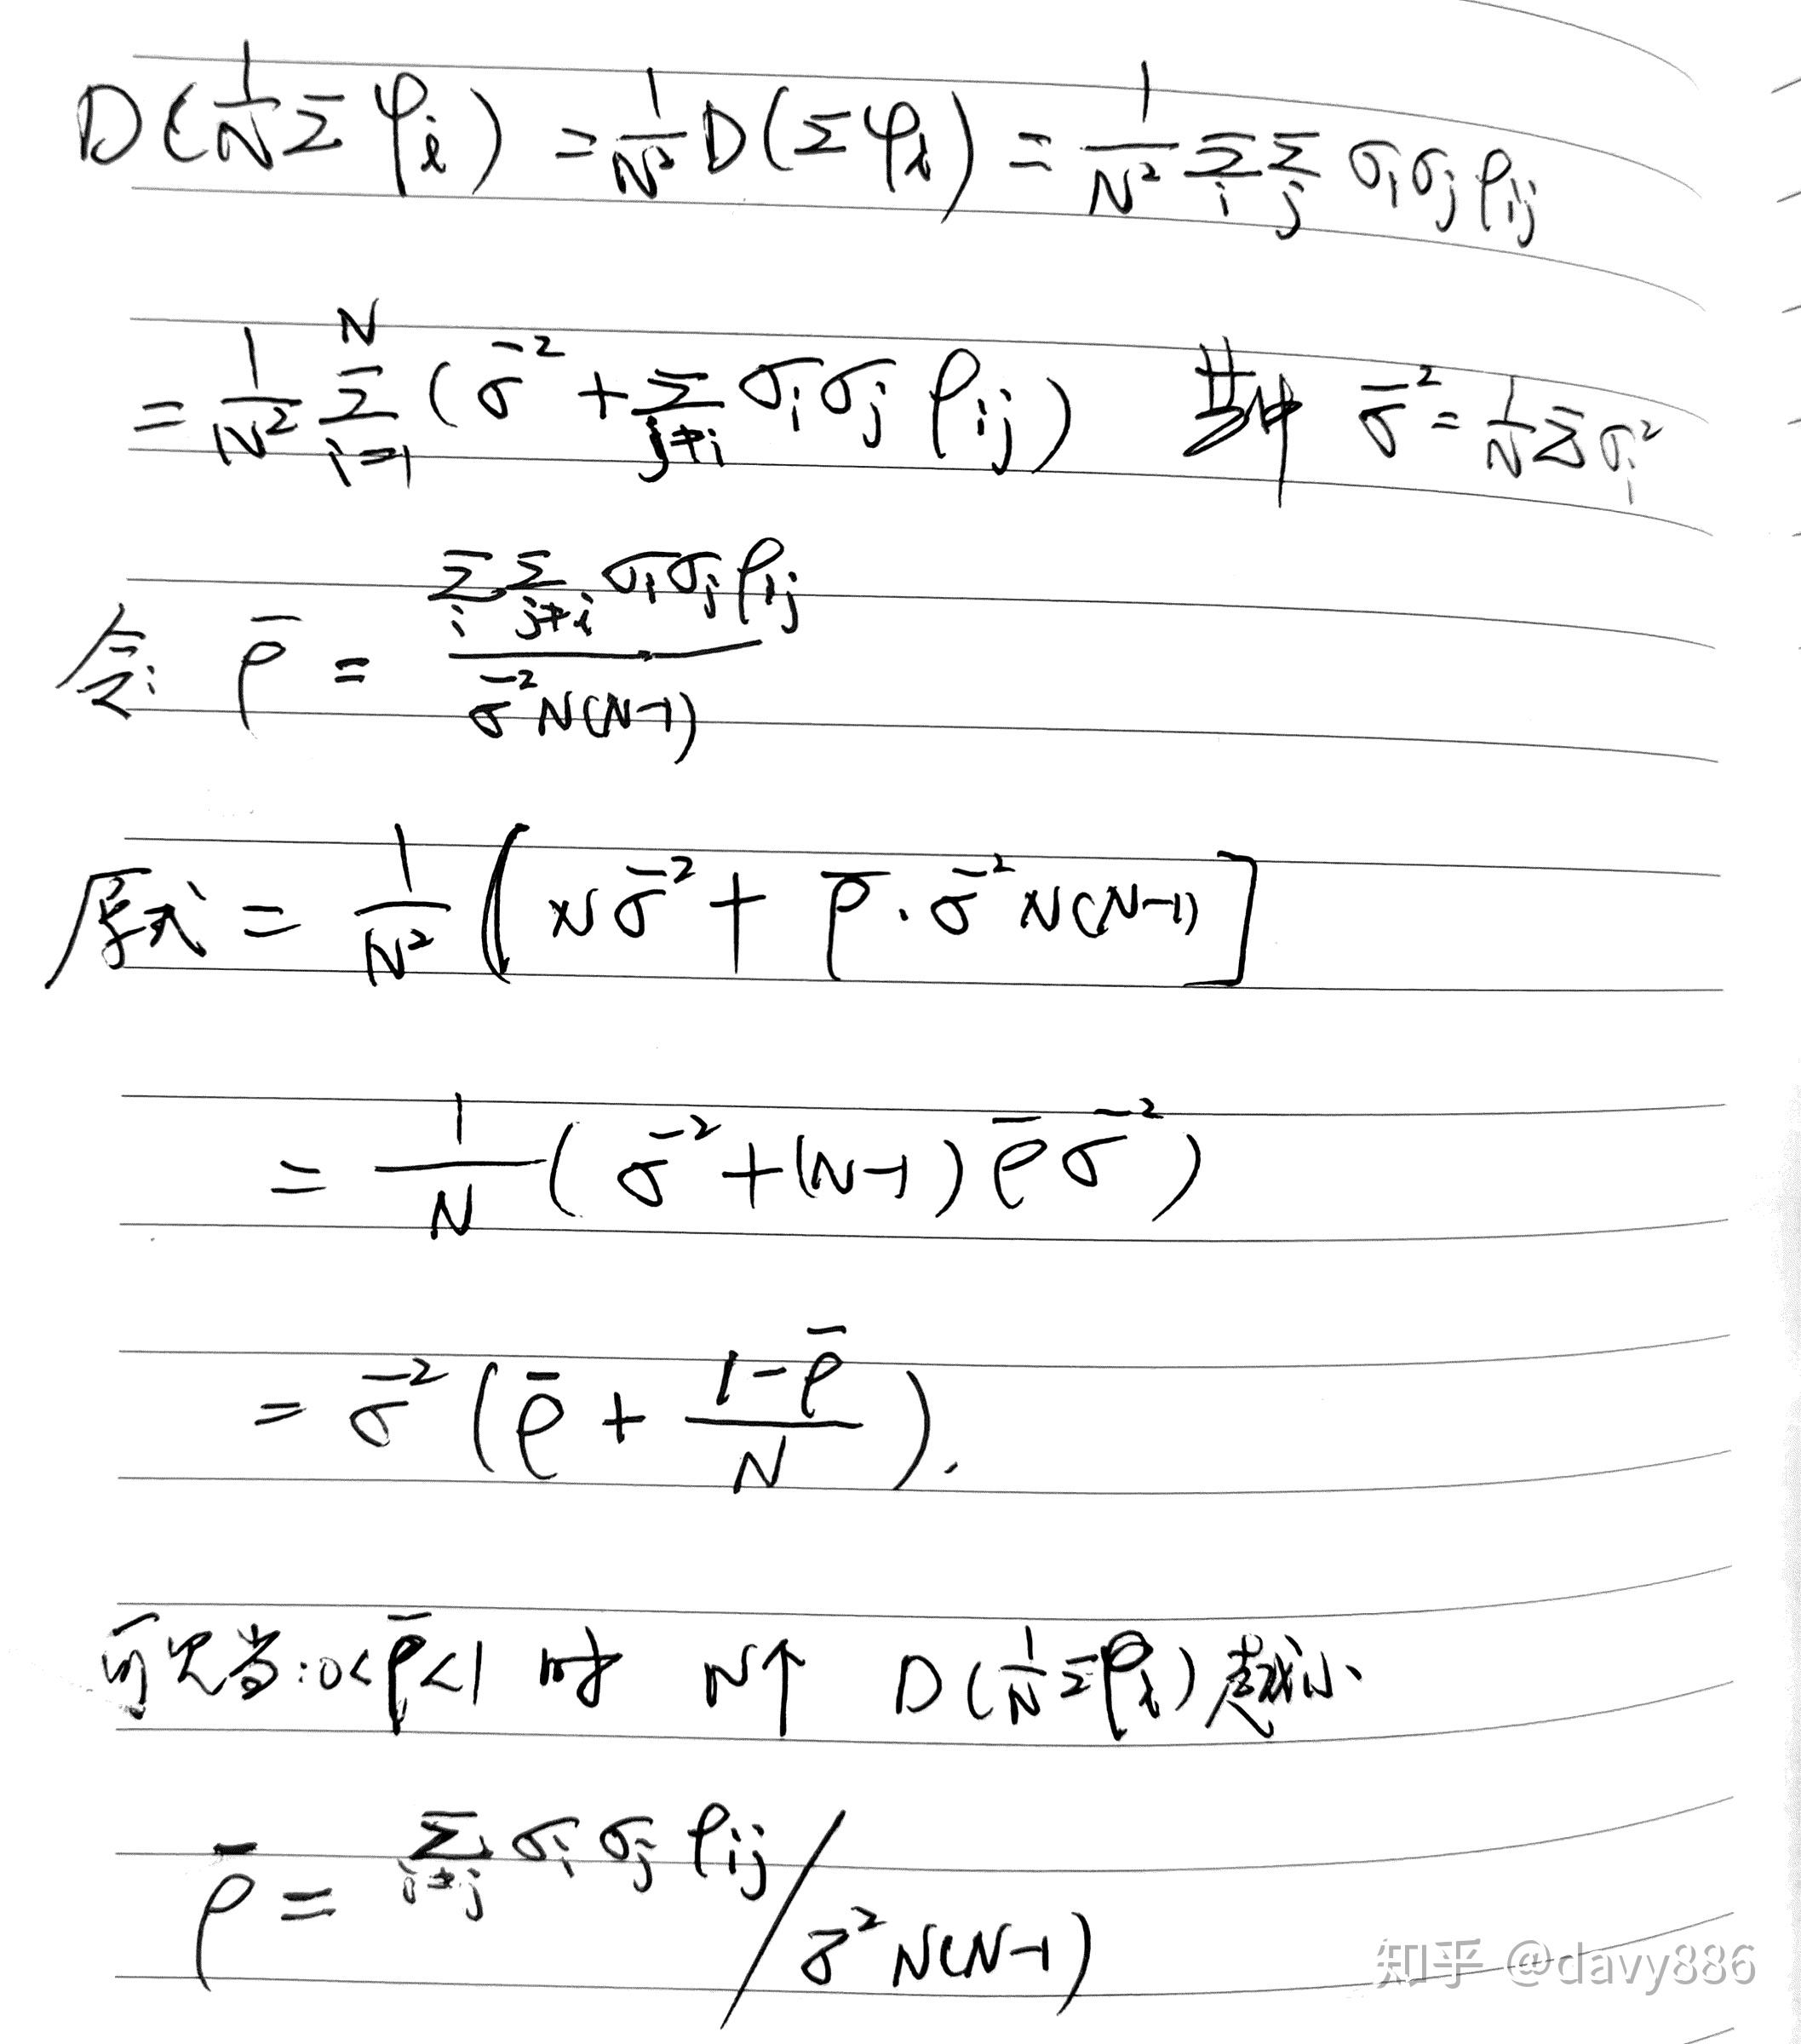 D(1/N Σ φᵢ) = 1/N² D(Σφᵢ) = 1/N² Σᵢ Σⱼ σᵢσⱼρᵢⱼ
= 1/N² Σᵢ₌₁ᴺ (σ̄² + Σ_{j≠i} σᵢσⱼρᵢⱼ) 其中 σ̄² = 1/N Σσᵢ²
令: ρ̄ = Σᵢ Σ_{j≠i} σᵢσⱼρᵢⱼ / σ̄²N(N-1)
原式 = 1/N² [Nσ̄² + ρ̄·σ̄²N(N-1)]
= 1/N (σ̄² + (N-1)ρ̄σ̄²)
= σ̄² (ρ̄ + (1-ρ̄)/N).
可见当: 0<ρ̄<1 时 N↑ D(1/N Σφᵢ) 越小
ρ̄ = Σ_{i≠j} σᵢσⱼρᵢⱼ / σ̄²N(N-1)
知乎 @davy886